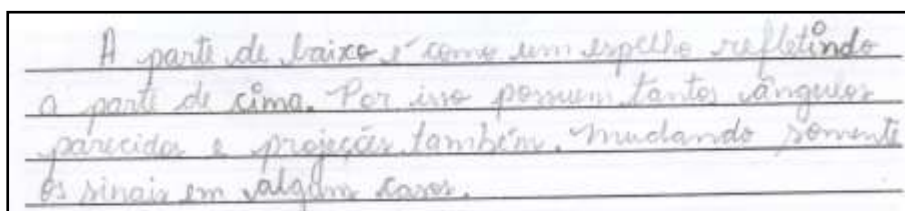 A parte de baixo é como um espelho refletindo
a parte de cima. Por isso possuem tantos ângulos
parecidos e projeções também. Mudando somente
os sinais em alguns casos.